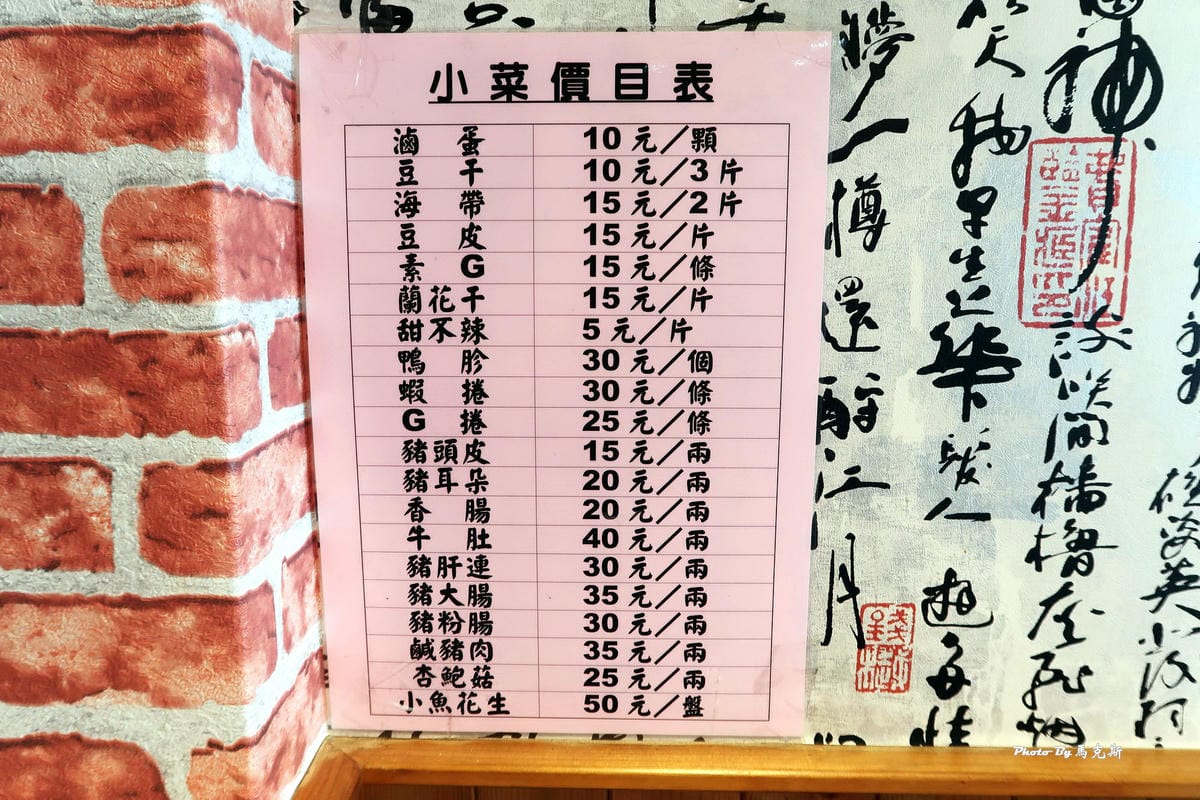 小菜價目表
滷蛋 10元／顆
豆干 10元／3片
海帶 15元／2片
豆皮 15元／片
素G 15元／條
蘭花干 15元／片
甜不辣 5元／片
鴨胗 30元／個
蝦捲 30元／條
G捲 25元／條
豬頭皮 15元／兩
豬耳朵 20元／兩
香腸 20元／兩
牛肚 40元／兩
豬肝連 30元／兩
豬大腸 35元／兩
豬粉腸 30元／兩
鹹豬肉 35元／兩
杏鮑菇 25元／兩
小魚花生 50元／盤
夢一樽還酹江月
華髮人
Photo By 馬克斯